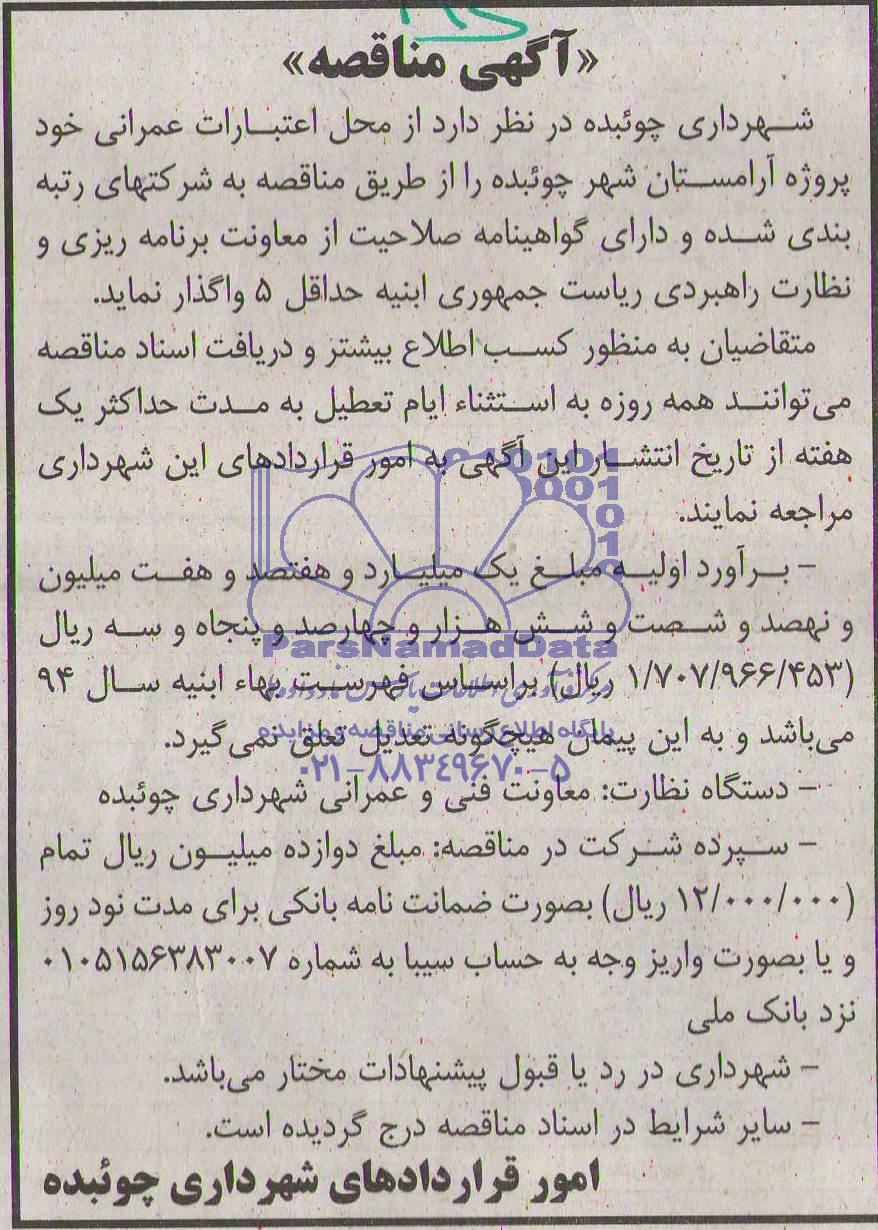 «آگهی مناقصه»
شهرداری چوئبده در نظر دارد از محل اعتبارات عمرانی خود
پروژه آرامستان شهر چوئبده را از طریق مناقصه به شرکتهای رتبه
بندی شده و دارای گواهینامه صلاحیت از معاونت برنامه ریزی و
نظارت راهبردی ریاست جمهوری ابنیه حداقل ۵ واگذار نماید.
متقاضیان به منظور کسب اطلاع بیشتر و دریافت اسناد مناقصه
می‌توانند همه روزه به استثناء ایام تعطیل به مدت حداکثر یک
هفته از تاریخ انتشار این آگهی به امور قراردادهای این شهرداری
مراجعه نمایند.
- برآورد اولیه مبلغ یک میلیارد و هفتصد و هفت میلیون
و نهصد و شصت و شش هزار و چهارصد و پنجاه و سه ریال
ParsNamadData
(۱/۷۰۷/۹۶۶/۴۵۳ ریال) براساس فهرست بهاء ابنیه سال ۹۴
پایگاه اطلاع رسانی مناقصه و مزایده
می‌باشد و به این پیمان هیچگونه تعدیل تعلق نمی‌گیرد.
۰۲۱-۸۸۳۴۹۶۷۰-۵
- دستگاه نظارت: معاونت فنی و عمرانی شهرداری چوئبده
- سپرده شرکت در مناقصه: مبلغ دوازده میلیون ریال تمام
(۱۲/۰۰۰/۰۰۰ ریال) بصورت ضمانت نامه بانکی برای مدت نود روز
و یا بصورت واریز وجه به حساب سیبا به شماره ۰۱۰۵۱۵۶۳۸۳۰۰۷
نزد بانک ملی
- شهرداری در رد یا قبول پیشنهادات مختار می‌باشد.
- سایر شرایط در اسناد مناقصه درج گردیده است.
امور قراردادهای شهرداری چوئبده